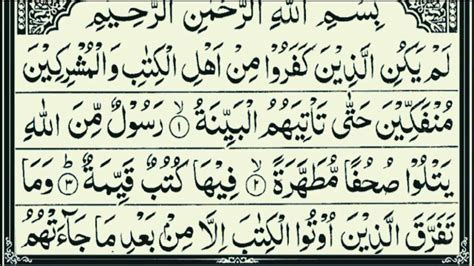 بِسْمِ اللهِ الرَّحْمٰنِ الرَّحِيْمِ
لَمْ يَكُنِ الَّذِيْنَ كَفَرُوْا مِنْ اَهْلِ الْكِتٰبِ وَالْمُشْرِكِيْنَ
مُنْفَكِّيْنَ حَتّٰى تَاْتِيَهُمُ الْبَيِّنَةُ ۙ﴿۱﴾ رَسُوْلٌ مِّنَ اللهِ
يَتْلُوْا صُحُفًا مُّطَهَّرَةً ۙ﴿۲﴾ فِيْهَا كُتُبٌ قَيِّمَةٌ ؕ﴿۳﴾ وَمَا
تَفَرَّقَ الَّذِيْنَ اُوْتُوا الْكِتٰبَ اِلَّا مِنْۢ بَعْدِ مَا جَآءَتْهُمُ